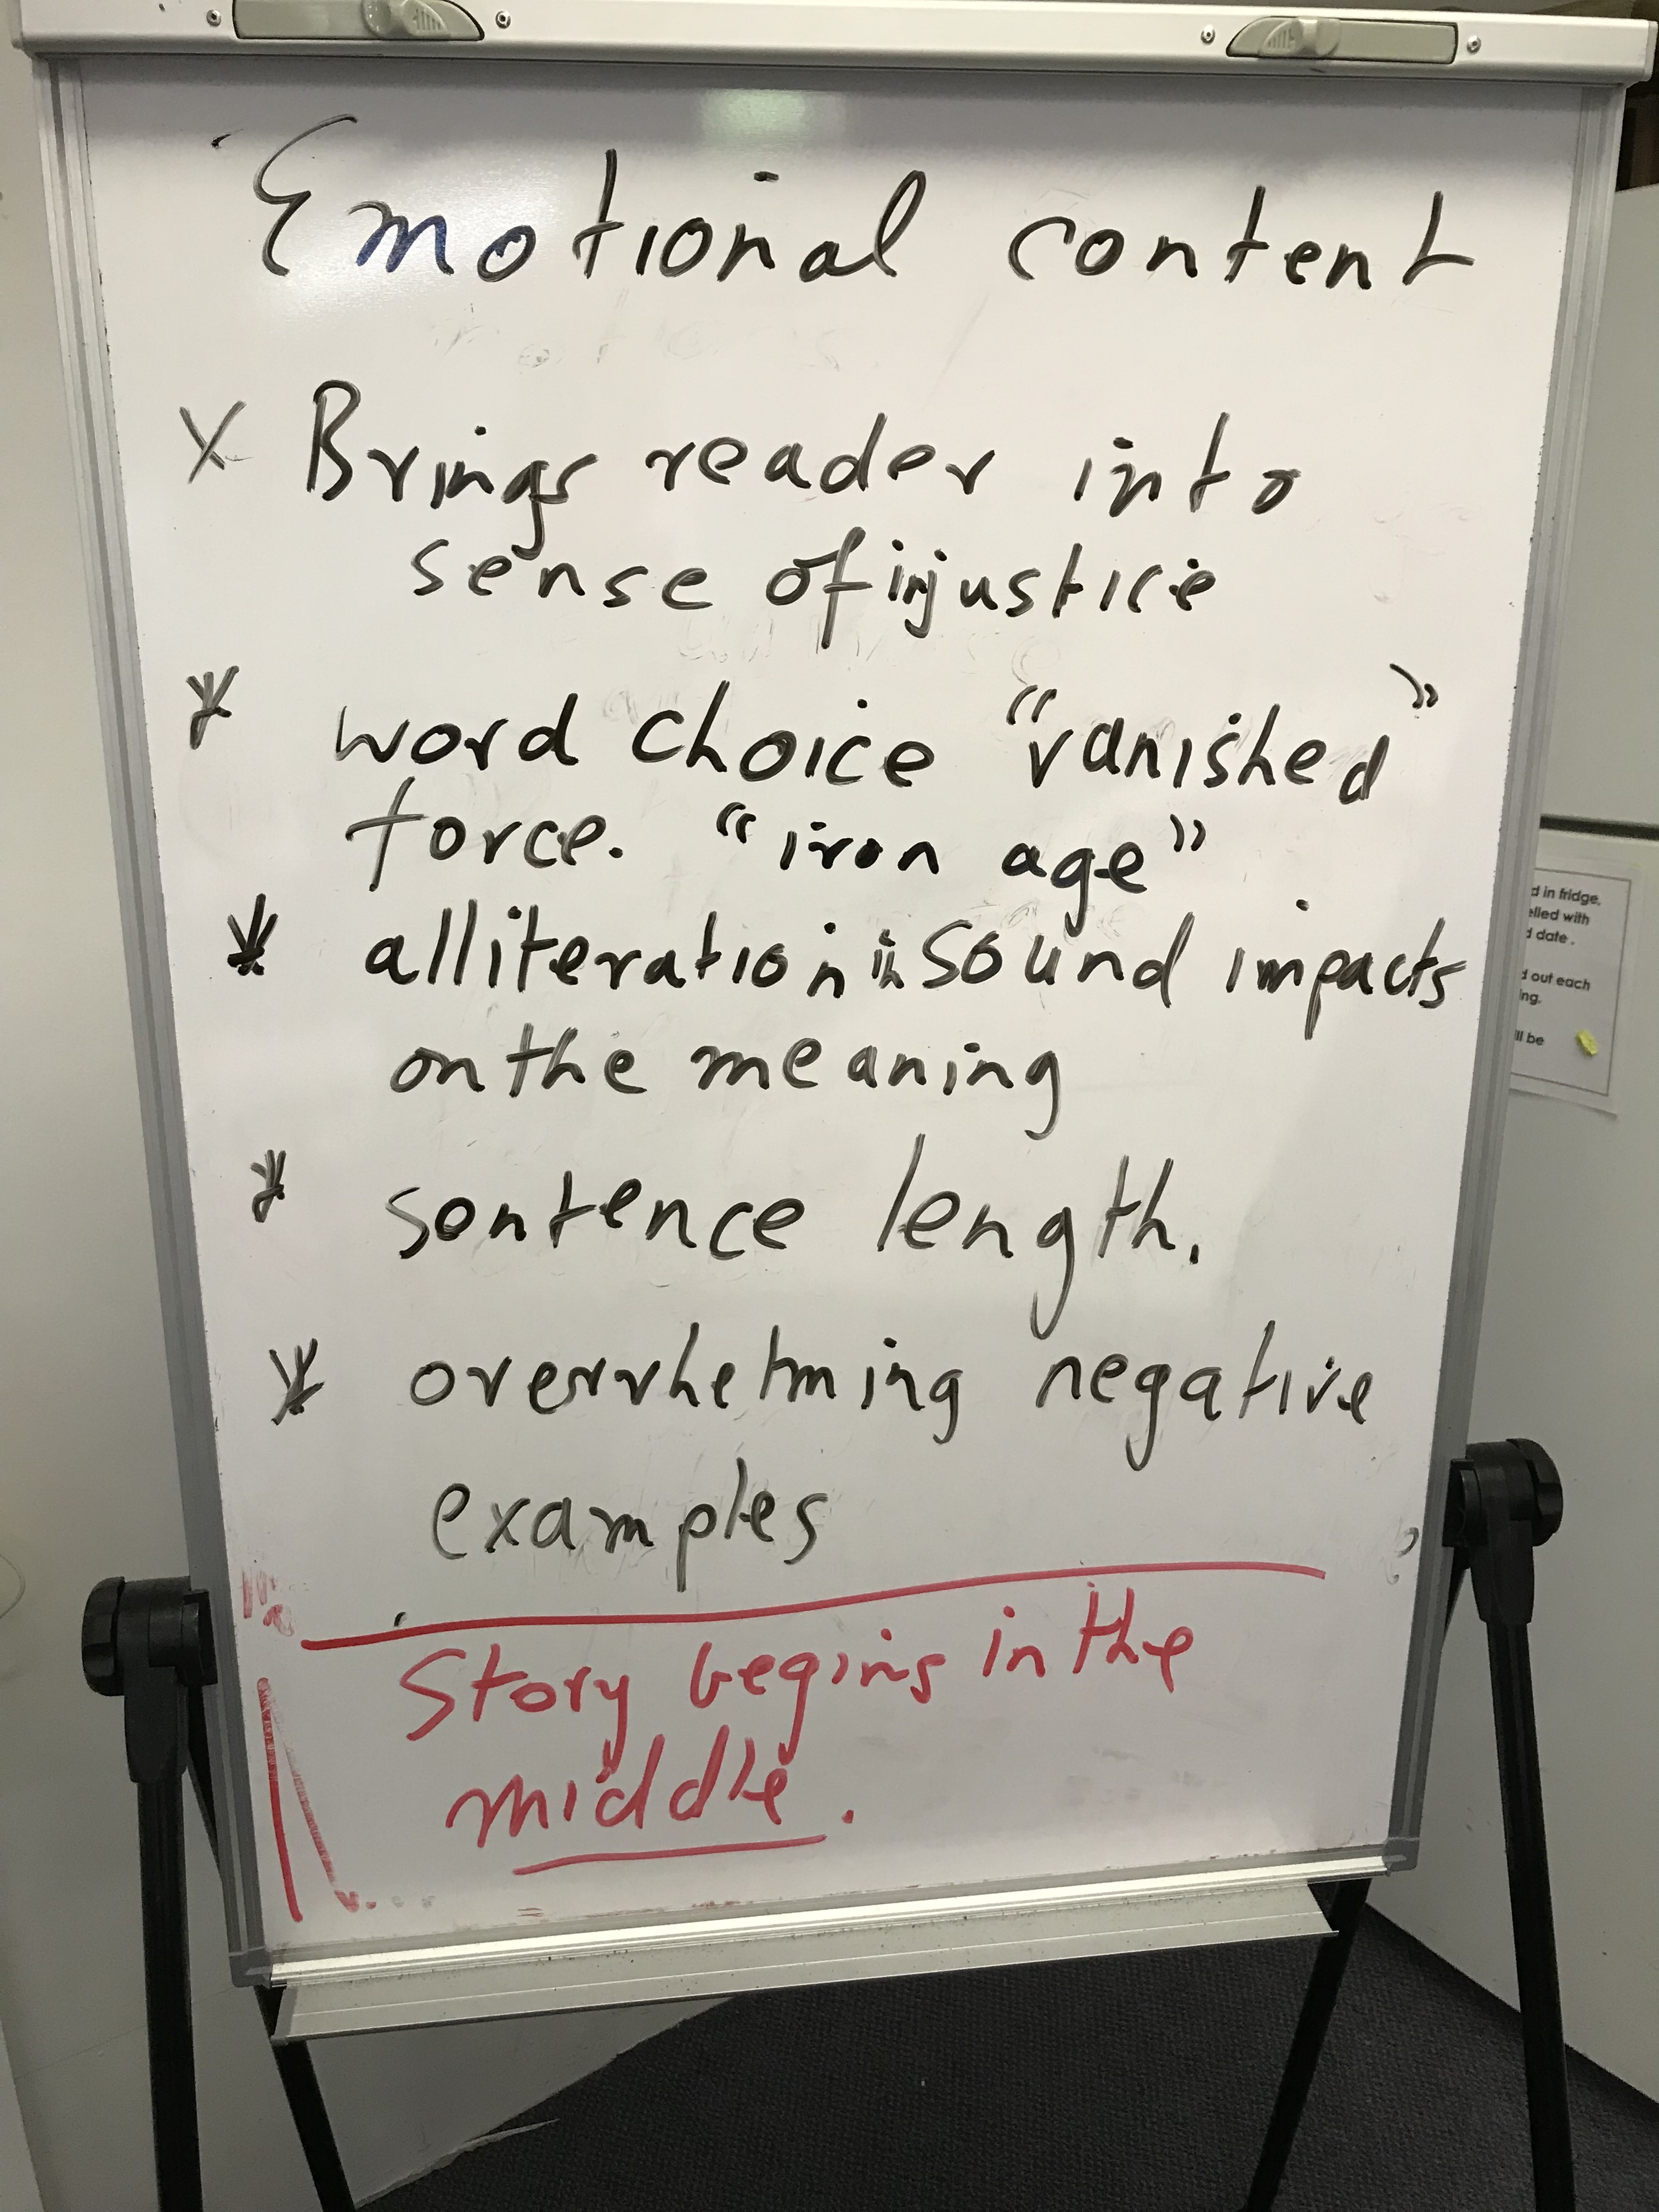 Emotional content
X Brings reader into
sense of injustice
* word choice "vanished"
force. "iron age"
* alliteration in sound impacts
on the meaning
* sentence length.
* overwhelming negative
examples
Story begins in the
middle.
d in fridge,
elled with
d date.
d out each
ing.
ll be